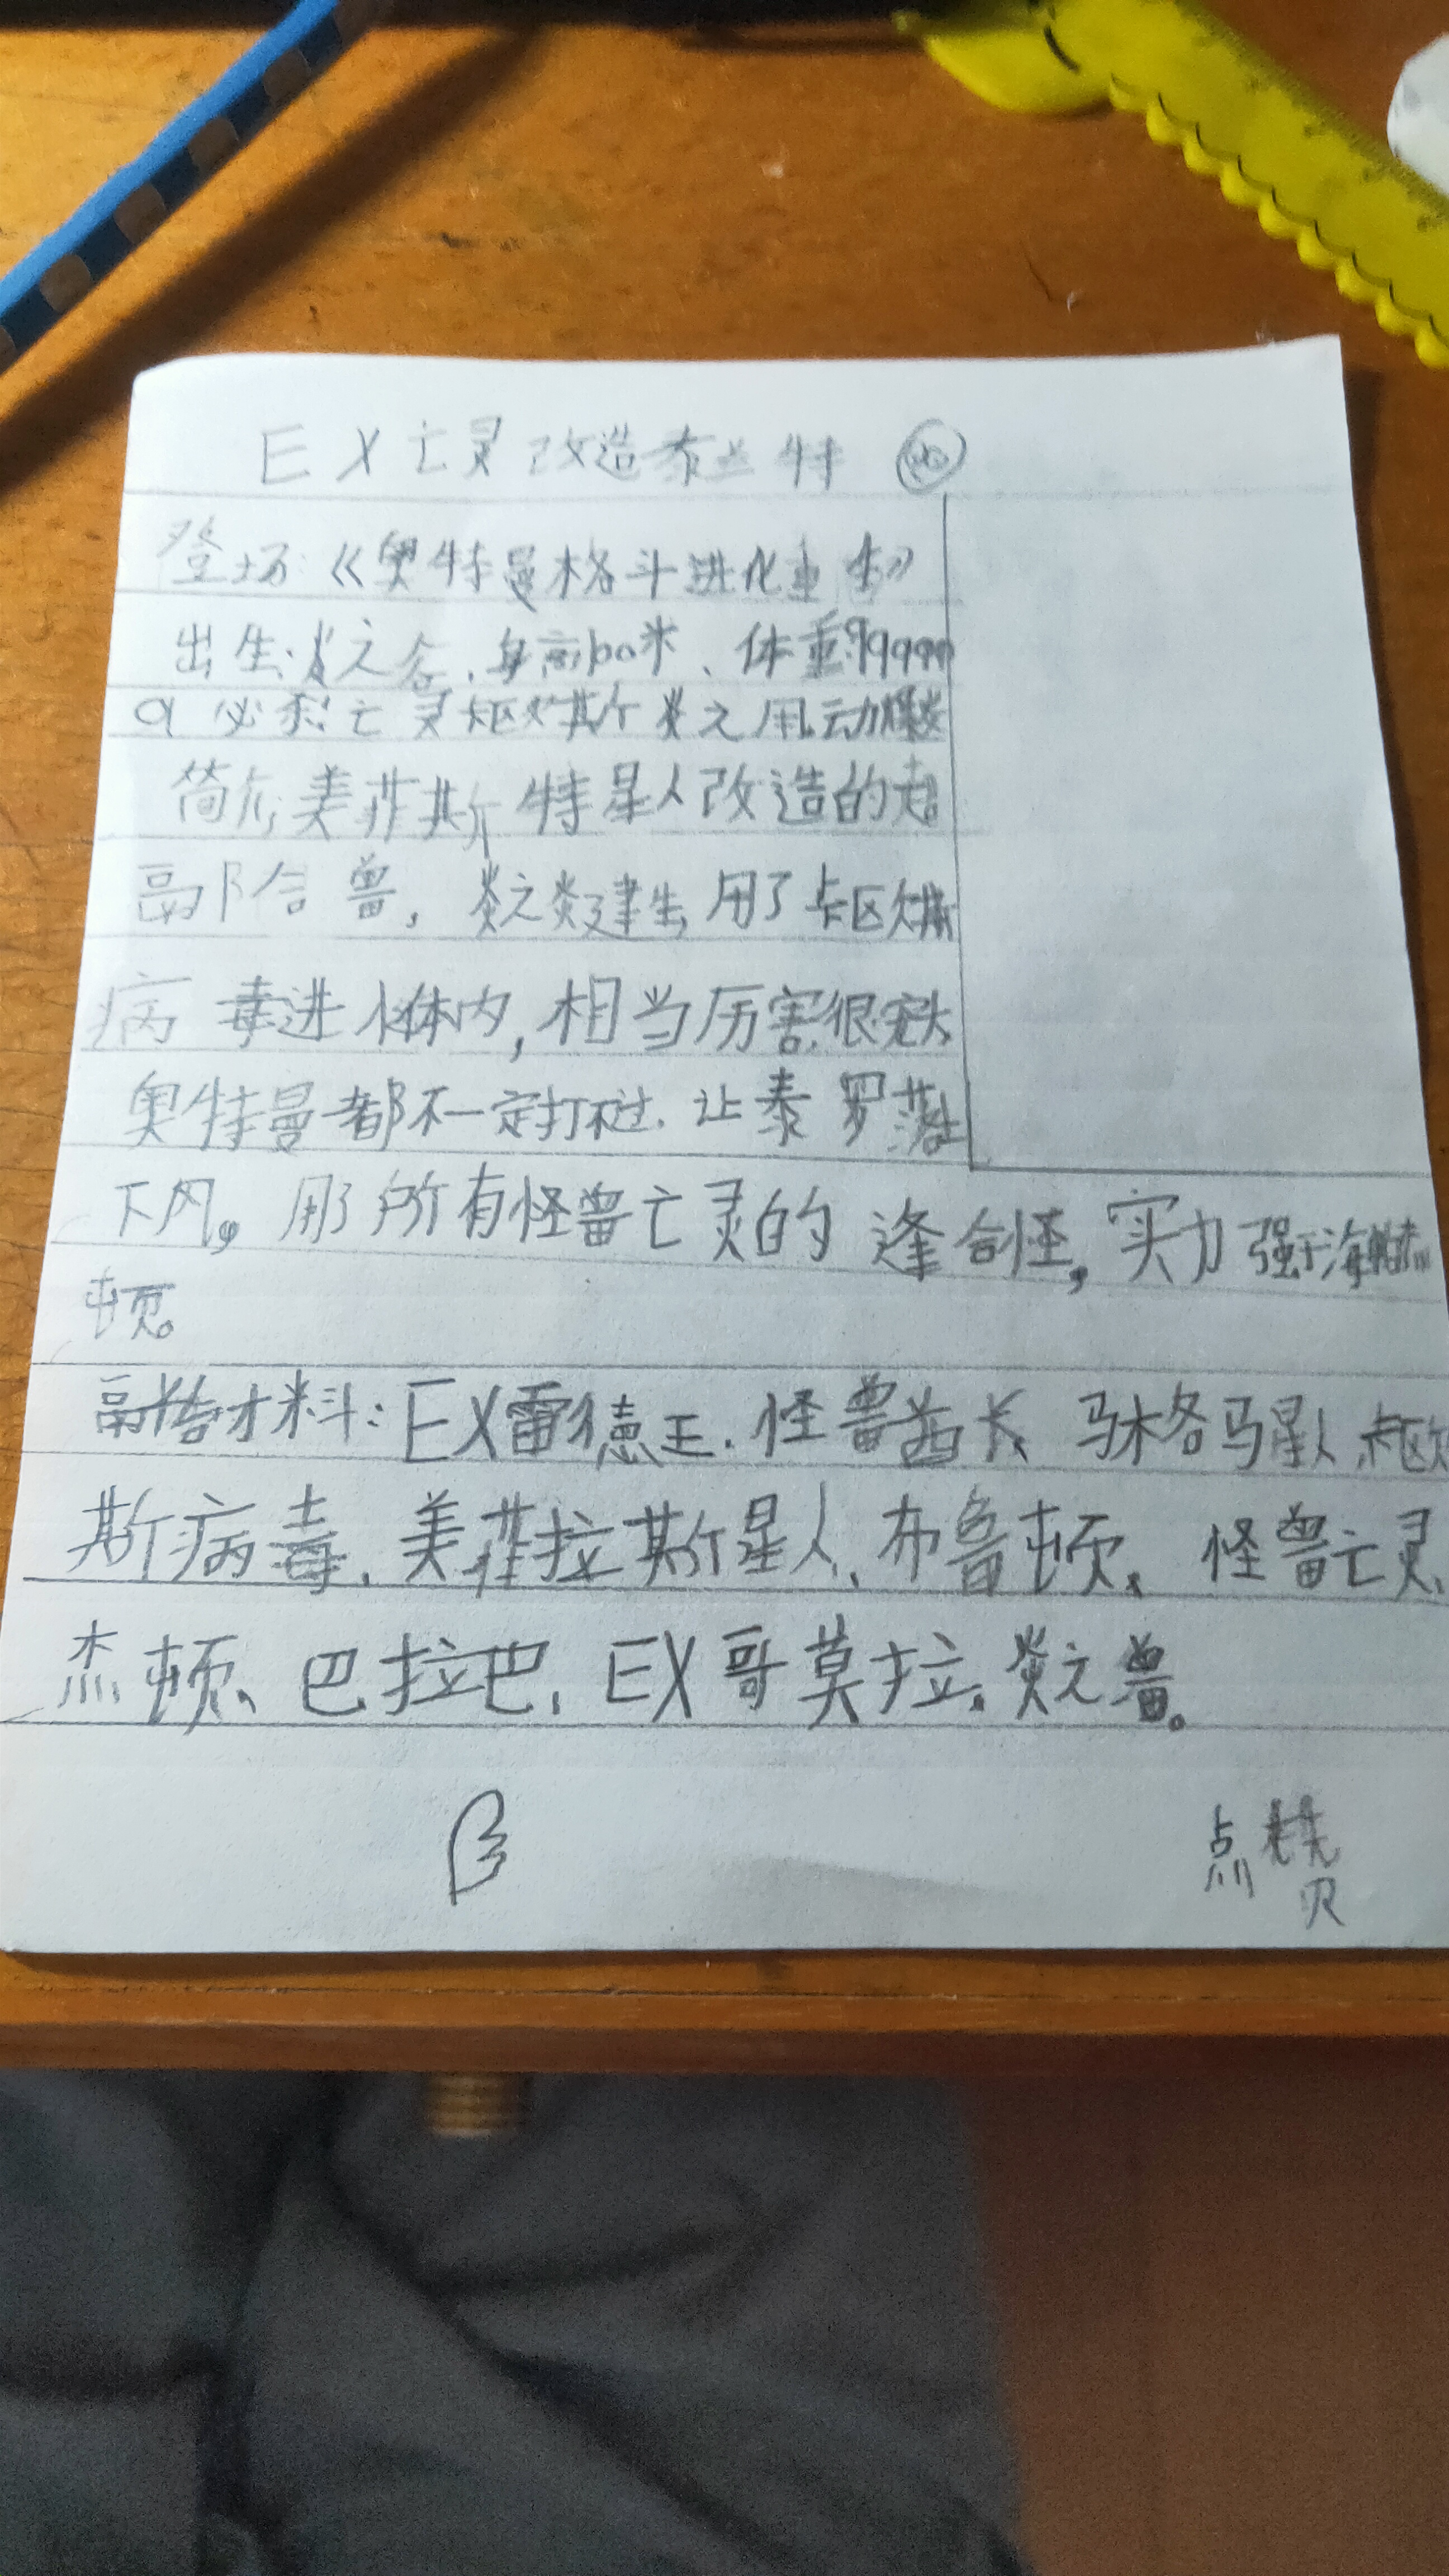 EX亡灵改造泰兰特
登场:《奥特曼格斗进化重生》
出生:炎之谷、身高100米、体重99999
9 必杀:亡灵 斯炎之
简介:美菲斯特星人改造的超
合兽,炎之炎建生,用了卡区欠斯
病毒进体内,相当厉害,很强大
奥特曼都不一定打过.让泰罗落
下风。用了所有怪兽亡灵的逢合怪,实力强于海帕杰
顿。
材料:EX雷德王.怪兽酋长、马格马星人、卡欧
斯病毒、美菲拉斯星人、布鲁顿、怪兽亡灵、
杰顿、巴拉巴、EX哥莫拉、炎之兽。
点赞